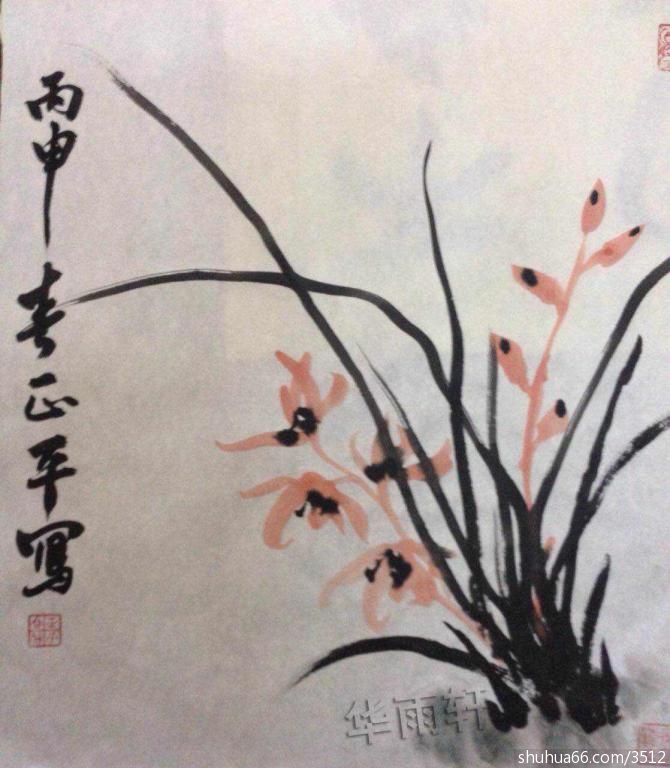 丙申春正平寫
华雨轩
shuhua66.com/3512